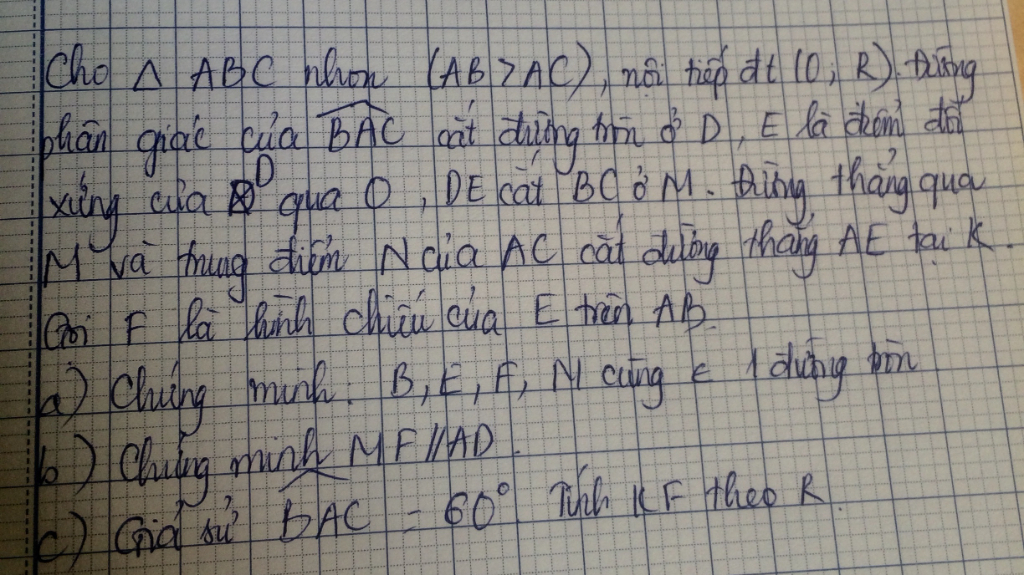 Cho △ ABC nhọn (AB > AC), nội tiếp đt (O; R). Đường
phân giác của BAC cắt đường tròn ở D, E là điểm đối
xứng của D qua O, DE cắt BC ở M. Đường thẳng qua
M và trung điểm N của AC cắt đường thẳng AE tại K.
Gọi F là hình chiếu của E trên AB.
a) Chứng minh: B, E, F, M cùng ∈ 1 đường tròn
b) Chứng minh MF // AD.
c) Giả sử BAC = 60°. Tính KF theo R.